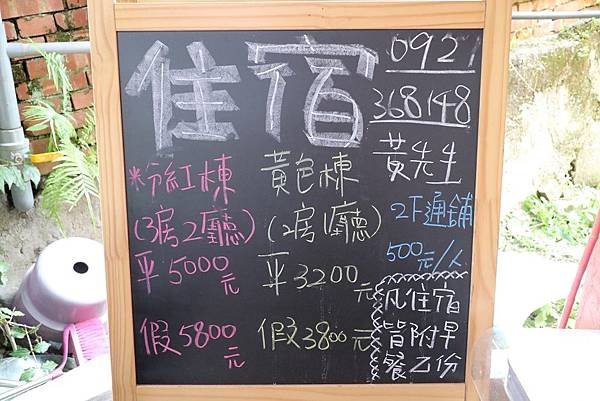 住宿
0921
368148
黃先生
※粉紅棟
(3房2廳)
平5000元
假5800元
黃色棟
(2房1廳)
平3200元
假3800元
2F通鋪
500元/人
凡住宿
皆附早
餐乙份